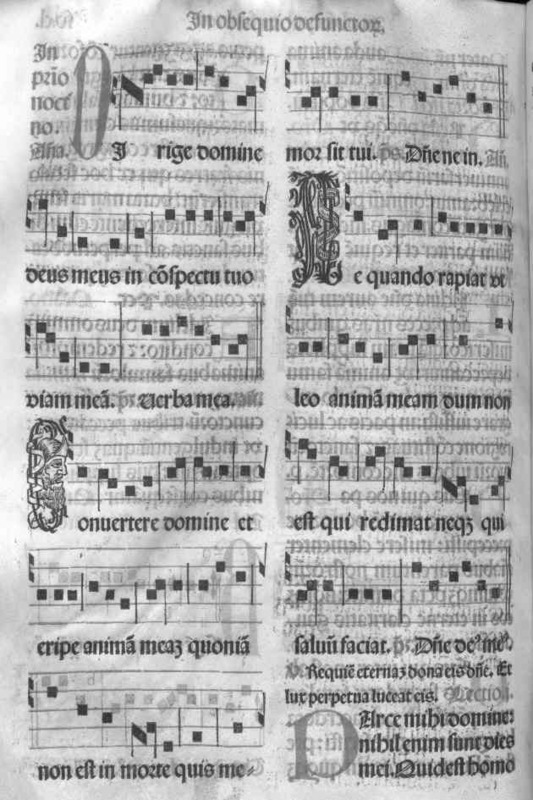 In obsequio defunctoꝝ.
In
prīo
noct
no.
Añа.
DIrige domine
deus meus in cōspectu tuo
viam meā. ps. Uerba mea.
Conuertere domine et
eripe animā meaꝫ quoniā
non est in morte quis me-
mor sit tui. ps. Dñe ne in. Añ.
Ne quando rapiat vt
leo animā meam dum non
est qui redimat neqꝫ qui
saluū faciat. ps. Dñe deꝰ meꝰ.
℣. Requiē eternaꝫ dona eis dñe. Et
lux perpetua luceat eis. Lectio.
PArce mihi domine:
nihil enim sunt dies
mei. Quid est homo